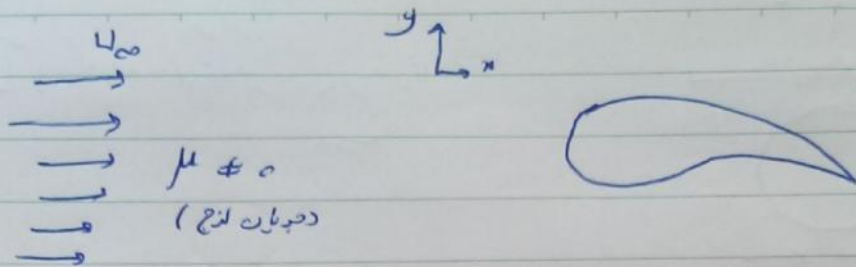 U∞
y
x
μ ≠ 0
(جریان لزج)